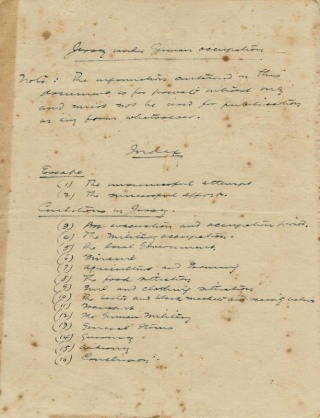 Jersey under German occupation
Note: The information contained in this
document is for private interest only
and must not be used for publication
in any form whatsoever.
Index
Escape
(1) The unsuccessful attempt
(2) The successful effort.
Conditions in Jersey.
(3) Pre evacuation and occupation period.
(4) The Military occupation.
(5) The local Government.
(6) Finance
(7) Agriculture and Farming
(8) The food situation
(9) Fuel and clothing situation
(10) The barter and black markets and
(11) Transport
(12) The German Military
(13) General Items
(14)
(15)
(16) Conclusion.